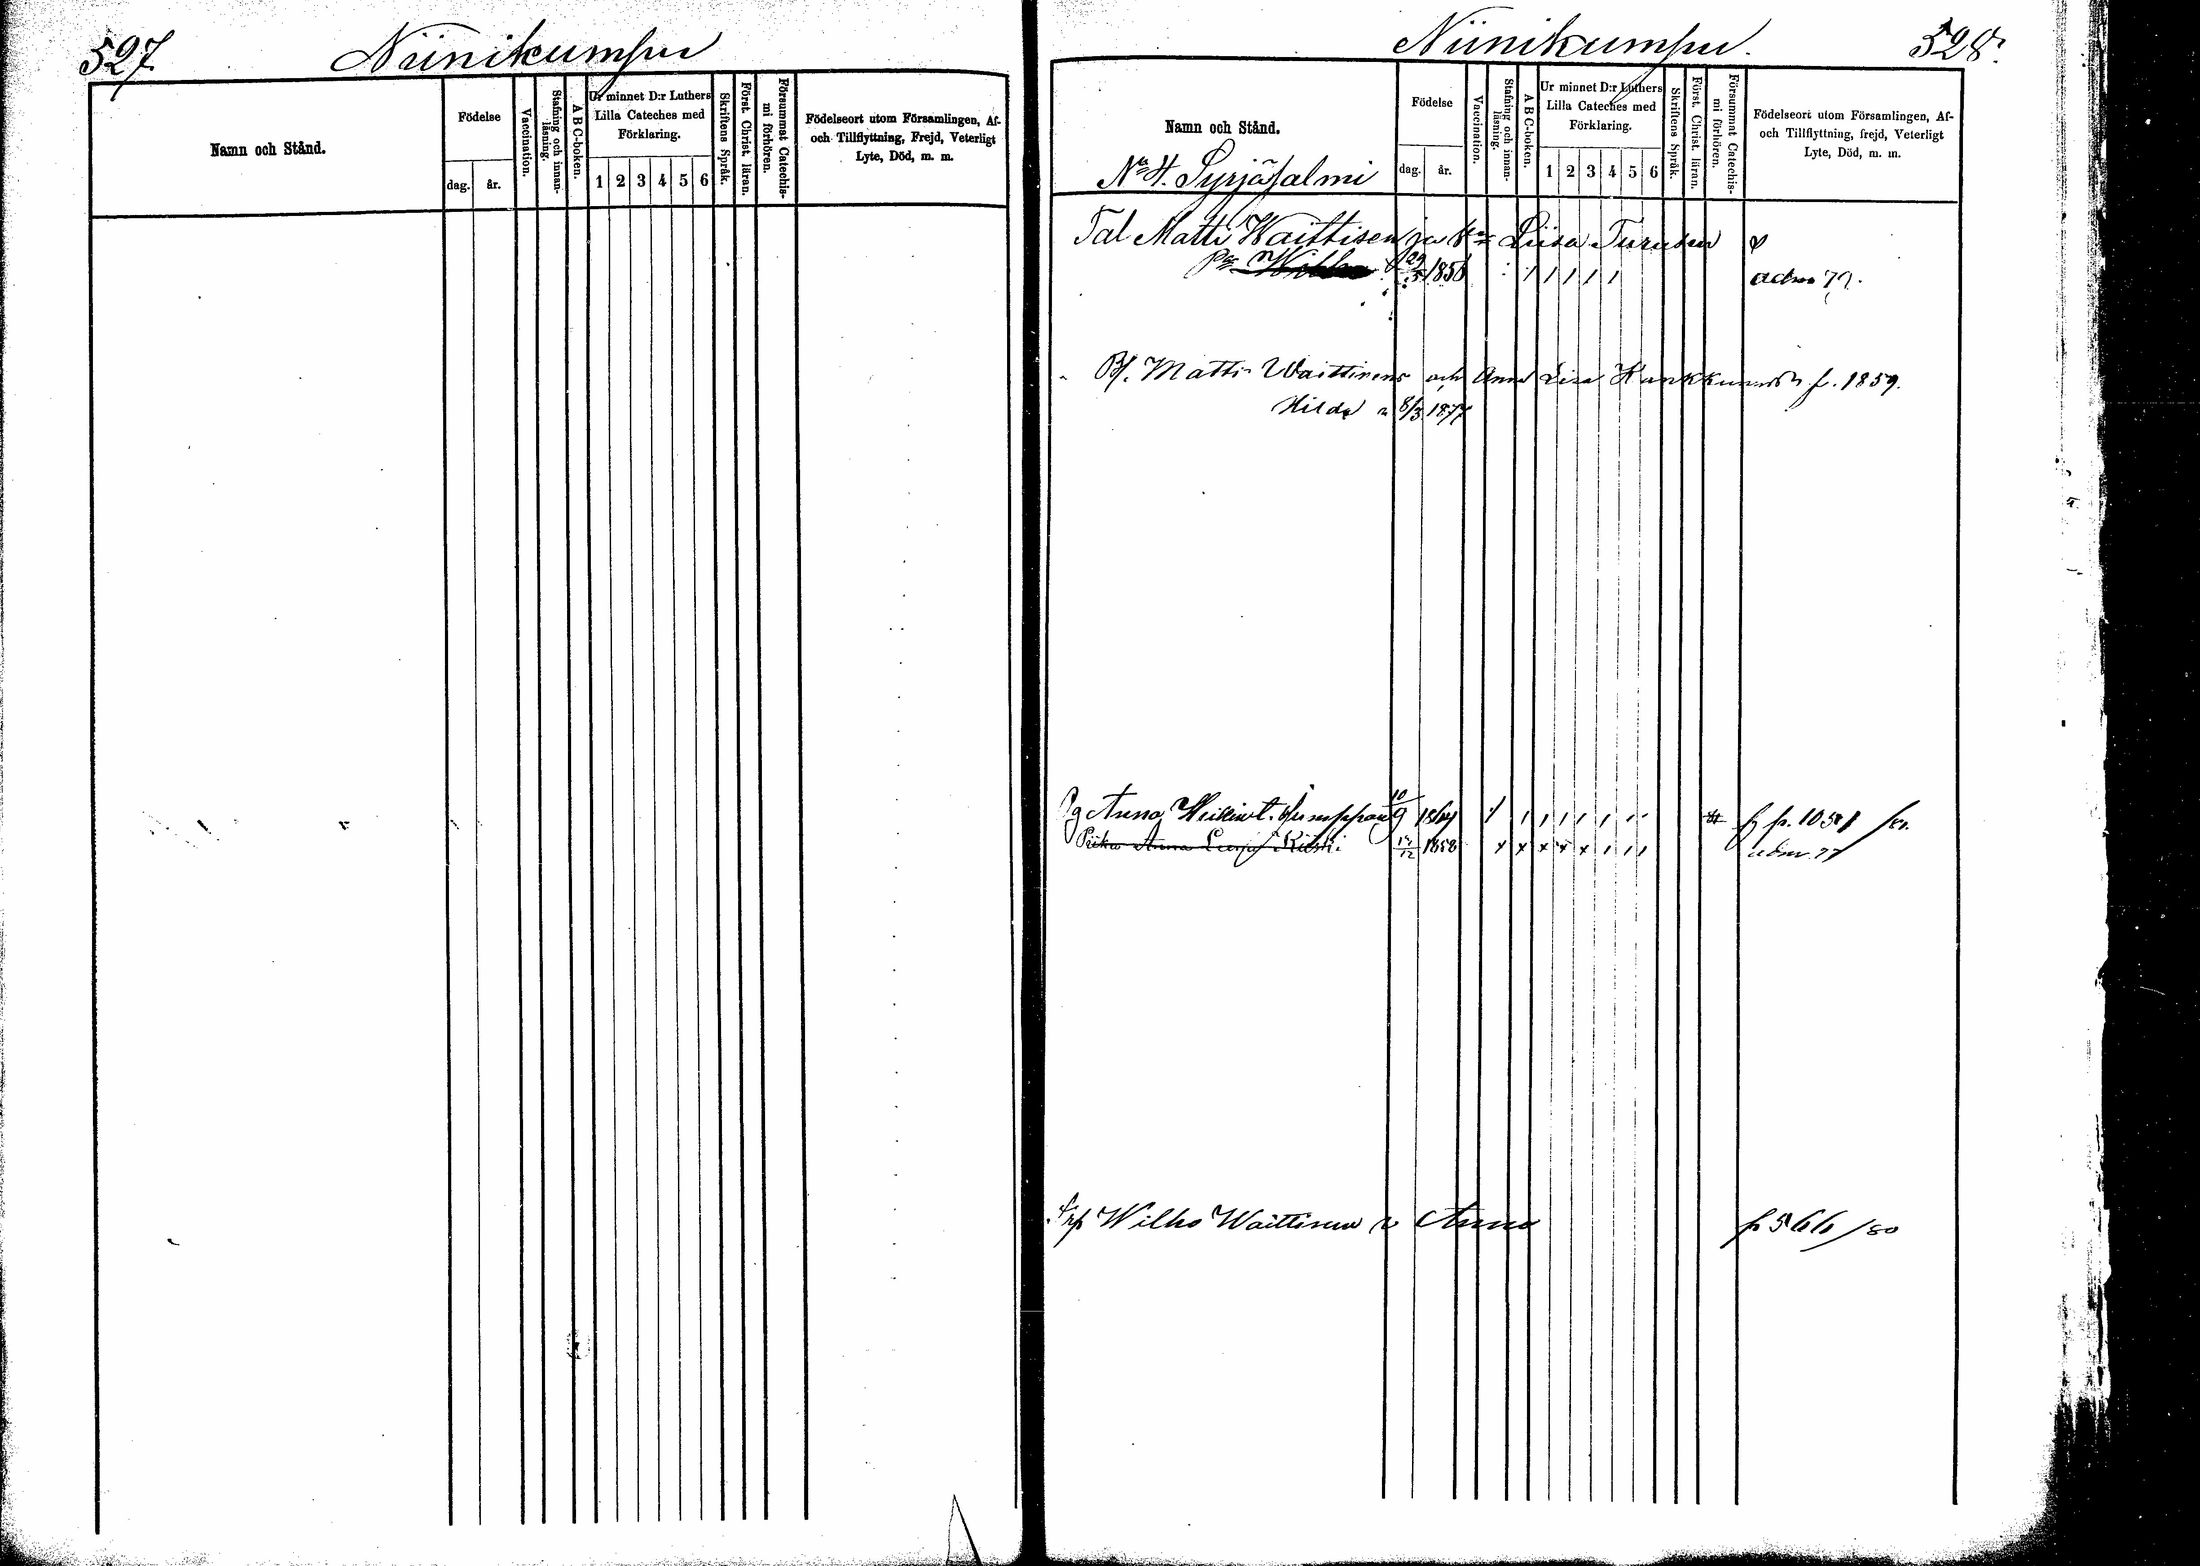 527. Niinikumpu
Namn och Stånd.
Födelse
dag. år.
Vaccination.
Stafning och innan-
läsning.
A B C-boken.
Ur minnet D:r Luthers
Lilla Cateches med
Förklaring.
1 2 3 4 5 6
Skriftens Språk.
Först. Christ. läran.
Försummat Catechis-
mi förhören.
Födelseort utom Församlingen, Af-
och Tillflyttning, Frejd, Veterligt
Lyte, Död, m. m.
Niinikumpu. 528.
Namn och Stånd.
No 4. Syrjäsalmi
Födelse
dag. år.
Vaccination.
Stafning och innan-
läsning.
A B C-boken.
Ur minnet D:r Luthers
Lilla Cateches med
Förklaring.
1 2 3 4 5 6
Skriftens Språk.
Först. Christ. läran.
Försummat Catechis-
mi förhören.
Födelseort utom Församlingen, Af-
och Tillflyttning, frejd, Veterligt
Lyte, Död, m. m.
Tal Matti Waittisen ja Liisa Turusen
Wilho 1856 adm 79.
Matti Waittinens och Anna Lisa f. 1859.
Hilda 8/3 1877
Pg Anna 10/9 fr. 1051
Piika Anna Kiiski 1858 adm 77
Wilho Waittinen Anna fr 566/80